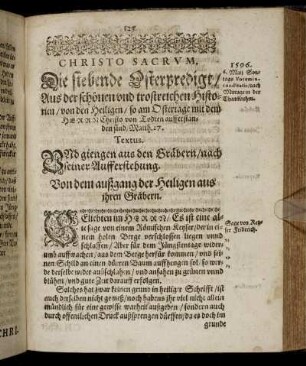 CHRISTO SACRVM.
Die siebende Osterpredigt/
Aus der schönen vnd trostreichen Histo-
rien/ von den Heiligen/ so am Ostertage mit dem
HERRN Christo von Todten aufferstan-
den sind/ Matth. 27.
Textus.
VNd giengen aus den Gräbern/ nach
seiner Aufferstehung.
Von dem außgang der Heiligen aus
ihren Gräbern.
GEliebten im HERRN/ Es ist eine al-
te sage von einem Römischen Keyser/ der in ei-
nem holen Berge verschlossen liegen vnnd
schlaffen/ Aber für dem Jüngstentage wider-
umb auffwachen/ aus dem Berge herfür kommen/ vnd sei-
nen Schild an einen dürren Baum auffhangen sol/ so wer-
de derselbe wider außschlahen/ vnd anfahen zu grünen vnnd
blühen/ vnd gute Zeit darauff erfolgen.
Solches hat zwar keinen grund in heiliger Schrifft/ ist
auch derselben nicht gemeß/ noch haben ihr viel nicht allein
mündlich für eine gewisse warheit außgeben/ sondern auch
durch öffentlichen Druck außsprengen dürffen/ da es doch im
grunde
1596.
Sage von Key-
ser Friderich.